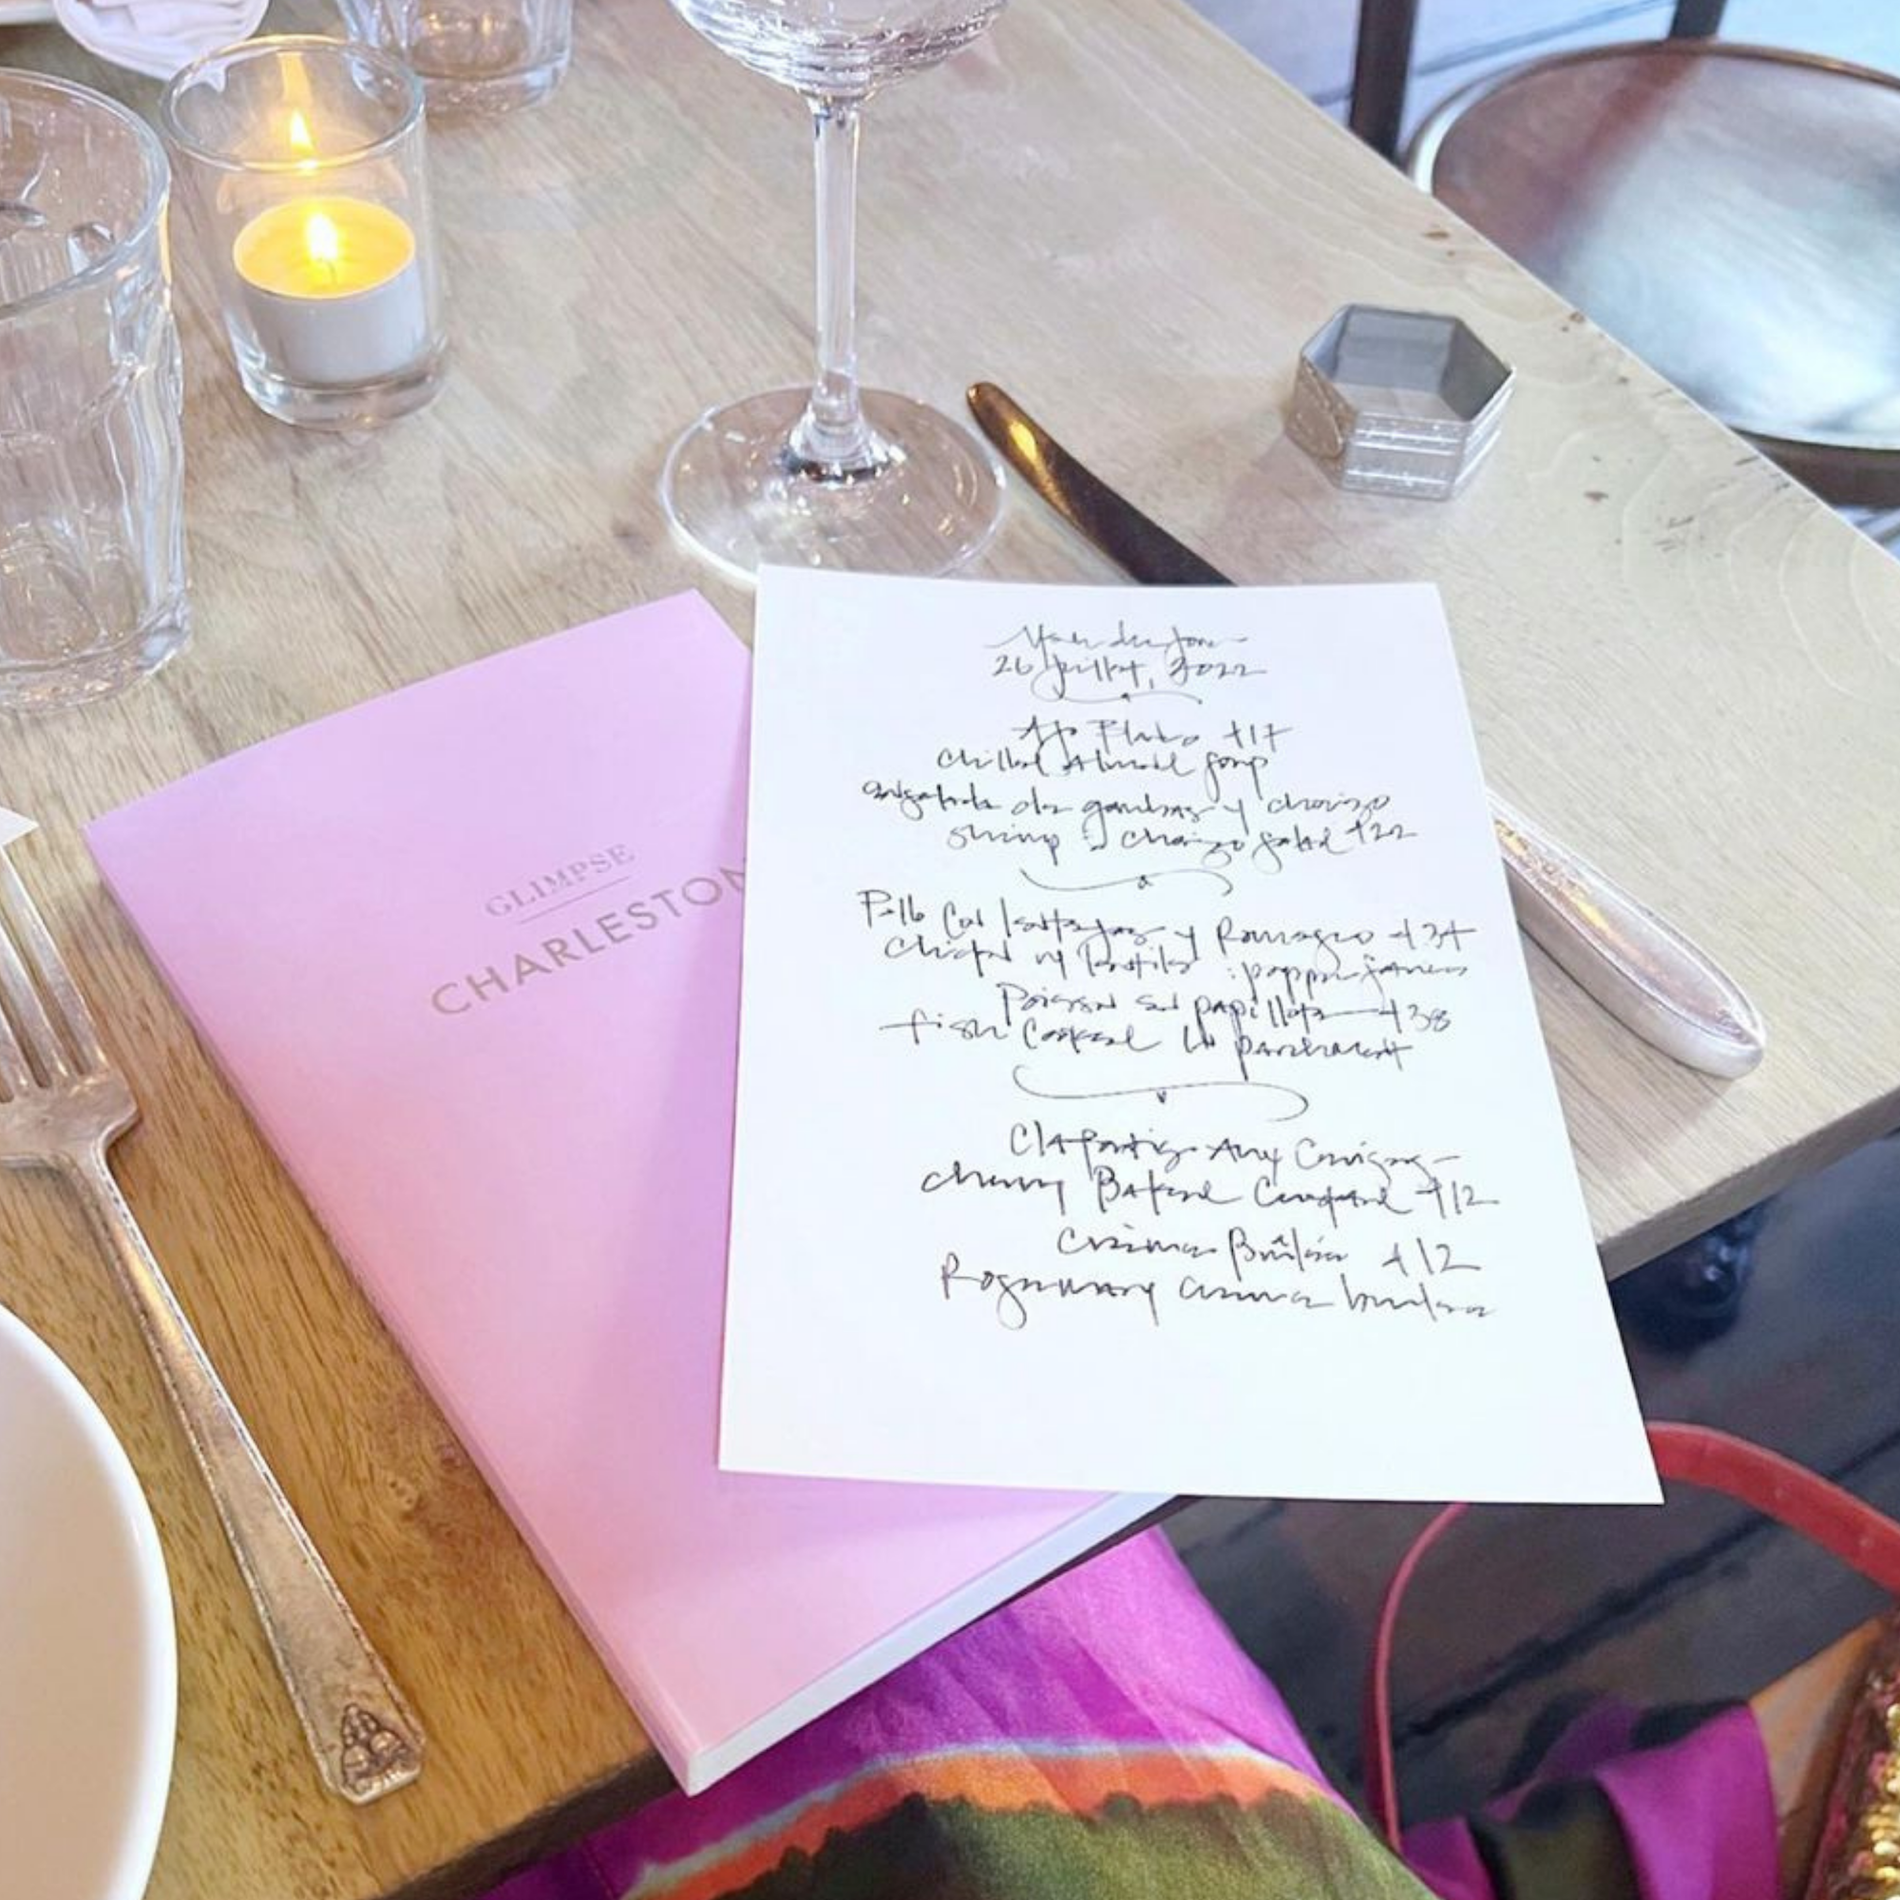 GLIMPSE
CHARLESTON
26 Juillet, 2022
Ajo Blanco +17
Chilled Almond Soup
ensalada de gambas y chorizo
Shrimp & Chorizo Salad +22
Pollo Con lentejas y Romesco +34
Chicken w/ lentils : pepper sauce
Poisson en papillote +38
fish Cooked in parchment
Clafoutis Aux Cerises
cherry Baked Custard +12
Crème Brûlée +12
Rosemary creme brulee